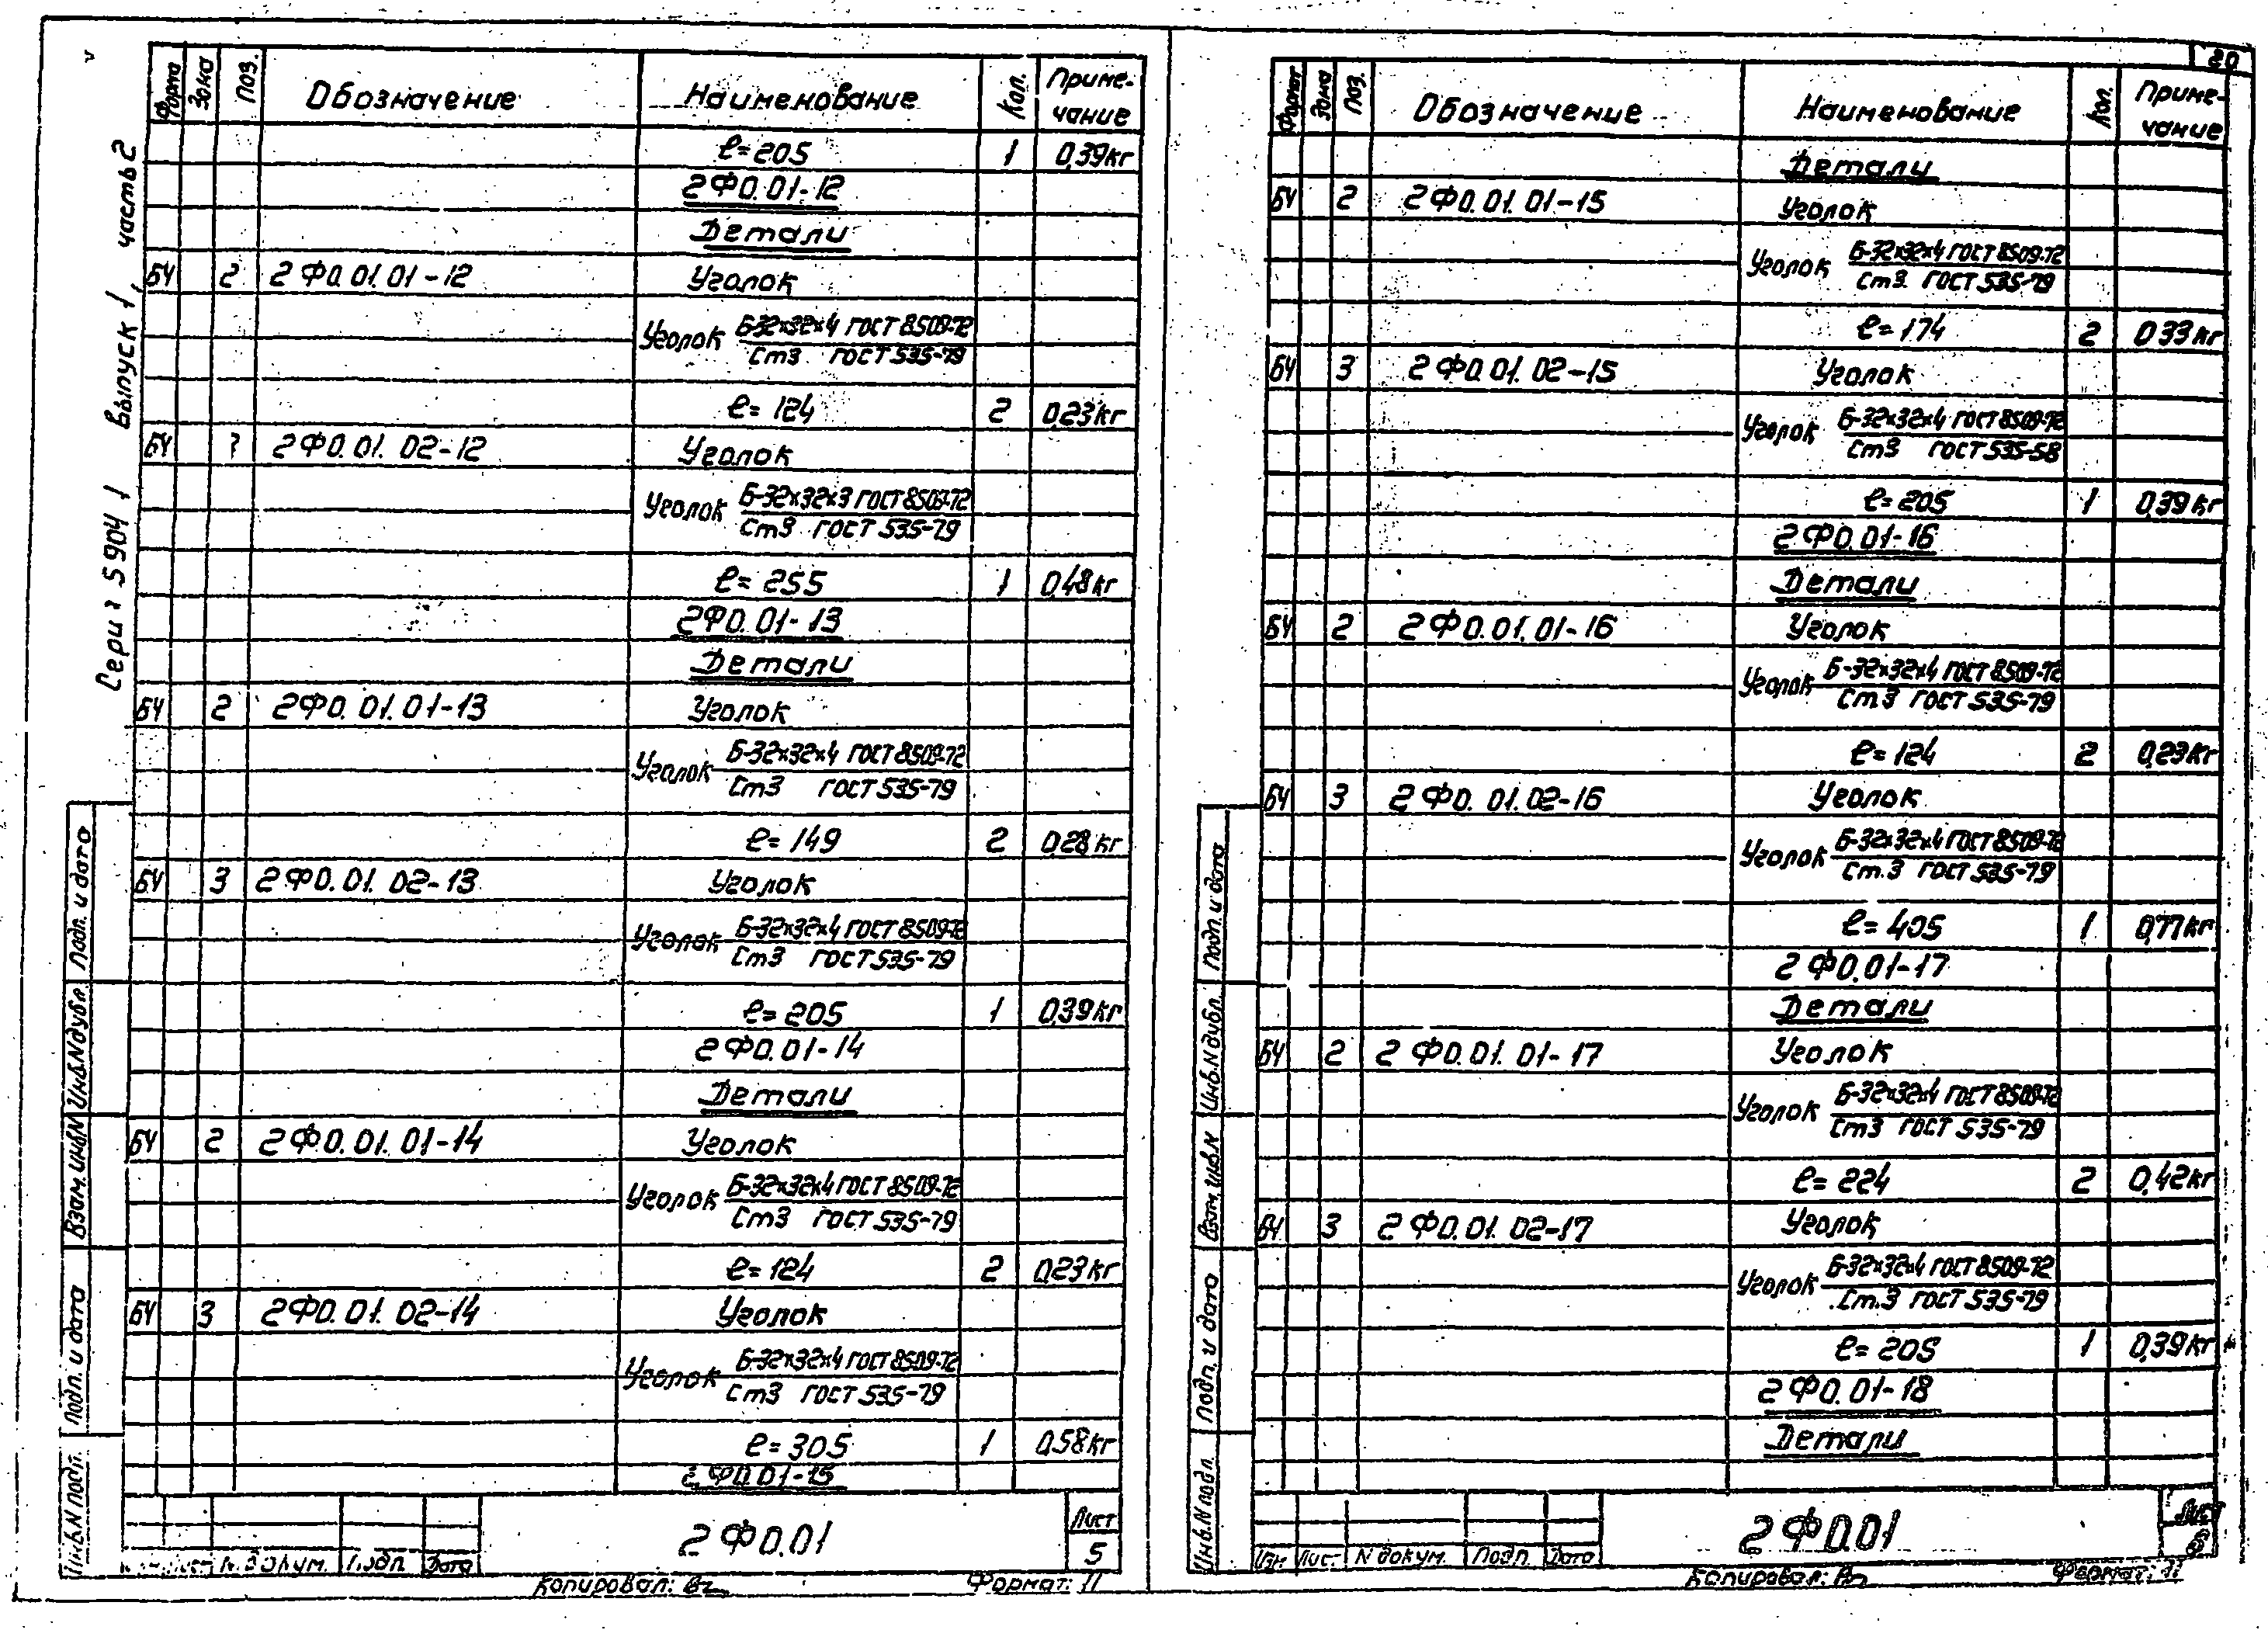 20
Серия 5904 1 выпуск 1, часть 2
Формат Зона Поз. Обозначение Наименование Кол. Приме-чание
ℓ=205 1 0,39кг
2ФО.01-12
Детали
БЧ 2 2ФО.01.01-12 Уголок
Уголок Б-32х32х4 ГОСТ 8509-72
Ст3 ГОСТ 535-79
ℓ=124 2 0,23кг
БЧ 2ФО.01.02-12 Уголок
Уголок Б-32х32х3 ГОСТ 8509-72
Ст3 ГОСТ 535-79
ℓ=255 1 0,48кг
2ФО.01-13
Детали
БЧ 2 2ФО.01.01-13 Уголок
Уголок Б-32х32х4 ГОСТ 8509-72
Ст3 ГОСТ 535-79
ℓ=149 2 0,28кг
БЧ 3 2ФО.01.02-13 Уголок
Уголок Б-32х32х4 ГОСТ 8509-72
Ст3 ГОСТ 535-79
ℓ=205 1 0,39кг
2ФО.01-14
Детали
БЧ 2 2ФО.01.01-14 Уголок
Уголок Б-32х32х4 ГОСТ 8509-72
Ст3 ГОСТ 535-79
ℓ=124 2 0,23кг
БЧ 3 2ФО.01.02-14 Уголок
Уголок Б-32х32х4 ГОСТ 8509-72
Ст3 ГОСТ 535-79
ℓ=305 1 0,58кг
2ФО.01-15
Подп. и дата
Инв.N дубл.
Взам.инв.N
Подп. и дата
Инв.N подл.
N докум. Подп. Дата
2ФО.01
Лист
5
Копировал:
Формат: 11
Формат Зона Поз. Обозначение Наименование Кол. Приме-чание
Детали
БЧ 2 2ФО.01.01-15 Уголок
Уголок Б-32х32х4 ГОСТ 8509-72
Ст3 ГОСТ 535-79
ℓ=174 2 0,33кг
БЧ 3 2ФО.01.02-15 Уголок
Уголок Б-32х32х4 ГОСТ 8509-72
Ст3 ГОСТ 535-58
ℓ=205 1 0,39кг
2ФО.01-16
Детали
БЧ 2 2ФО.01.01-16 Уголок
Уголок Б-32х32х4 ГОСТ 8509-72
Ст.3 ГОСТ 535-79
ℓ=124 2 0,23кг
БЧ 3 2ФО.01.02-16 Уголок
Уголок Б-32х32х4 ГОСТ 8509-72
Ст.3 ГОСТ 535-79
ℓ=405 1 0,77кг
2ФО.01-17
Детали
БЧ 2 2ФО.01.01-17 Уголок
Уголок Б-32х32х4 ГОСТ 8509-72
Ст3 ГОСТ 535-79
ℓ=224 2 0,42кг
БЧ 3 2ФО.01.02-17 Уголок
Уголок Б-32х32х4 ГОСТ 8509-72
Ст.3 ГОСТ 535-79
ℓ=205 1 0,39кг
2ФО.01-18
Детали
Подп. и дата
Инв.N дубл.
Взам.инв.N
Подп. и дата
Инв.N подл.
Изм. Лист N докум. Подп. Дата
2ФО.01
Лист
6
Копировал:
Формат: 11